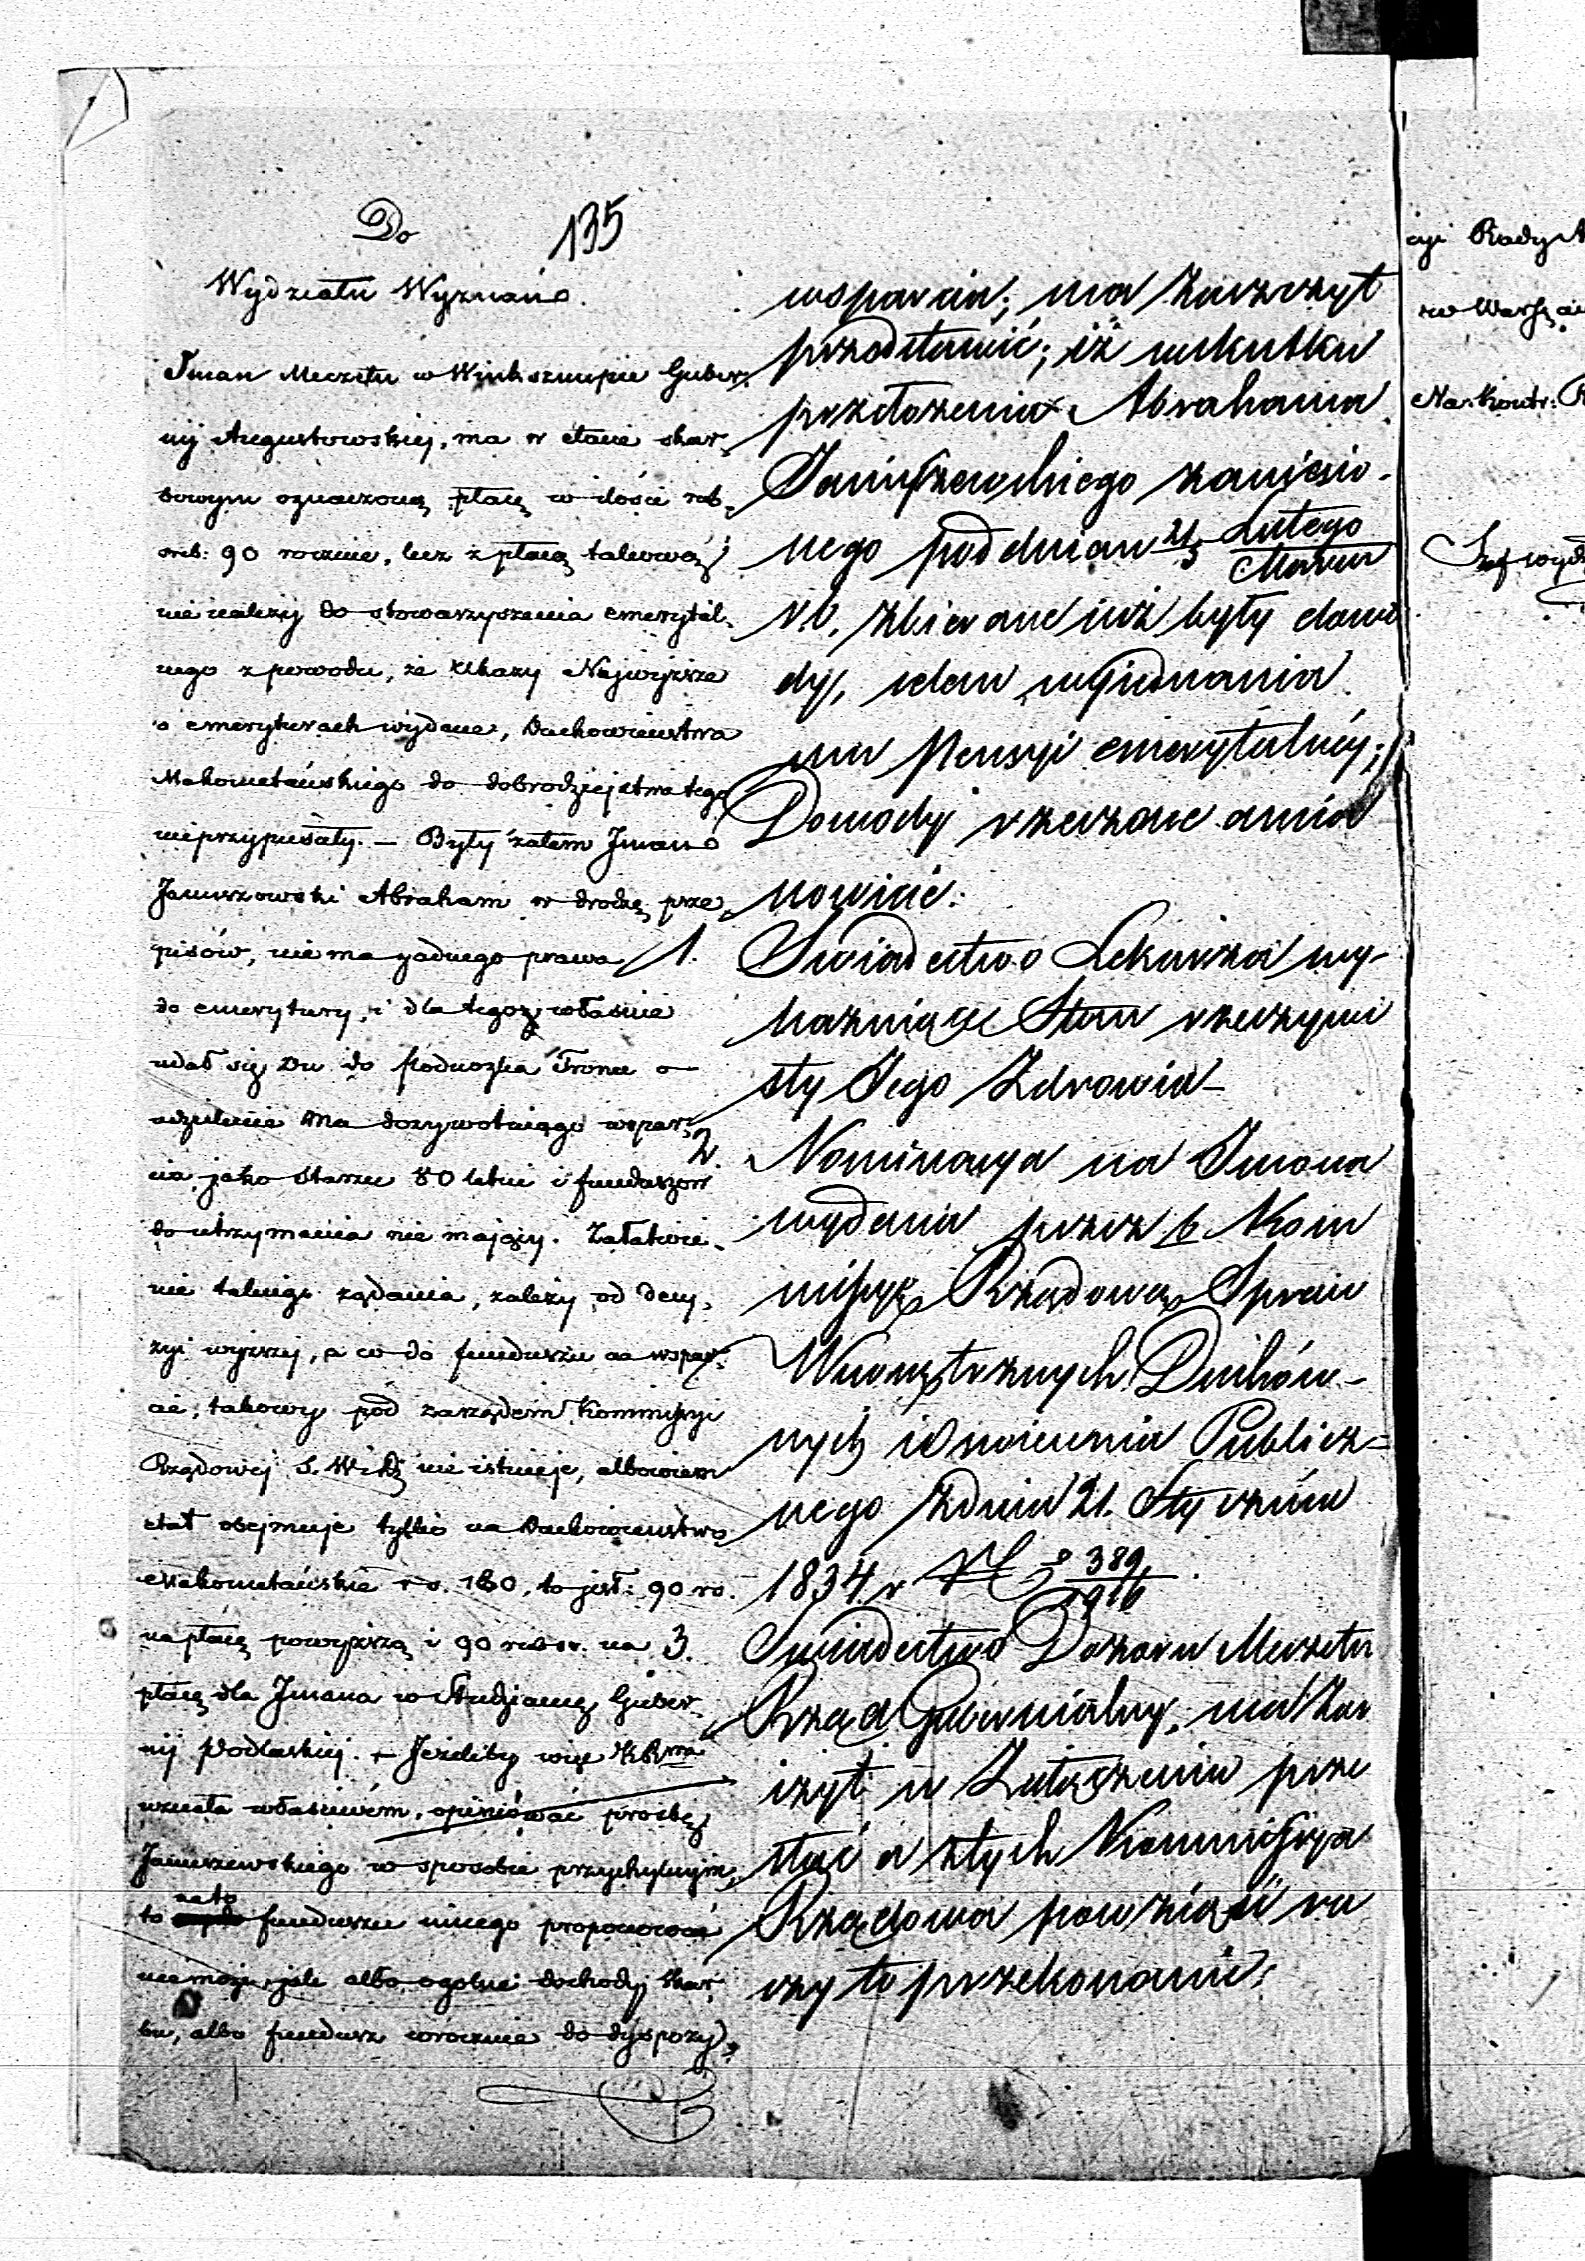 135
Do
Wydziału Wyznań.
Iman Meczetu w Winksznupie Guber-
nij Augustowskiej, ma w etacie skar-
bowym oznaczoną płacę w ilości rub.
sreb: 90 rocznie, lecz z płacą takową
nie należy do stowarzyszenia emerytal-
nego z powodu, że Ukazy Najwyższe
o emeryturach wydane, Duchowieństwa
Mahometańskiego do dobrodziejstwa tego
nieprzypuszczały. – Były zatem Iman
Januszowski Abraham w drodze prze-
pisów, nie ma żadnego prawa
do emerytury, i dla tegoż właśnie
udał się do podnóżka Tronu o
udzielenie Mu dożywotniego wspar-
cia, jako starzec 80 letni i funduszów
do utrzymania nie mający. Załatwie-
nie takiego żądania, zależy od decy-
zyi wyższej, a co do funduszu na wspar-
cie, takowy pod zarządem Kommissyi
Rządowej S. W. i D. nie istnieje, albowiem
etat obejmuje tylko na Duchowieństwo
Mahometańskie rs. 180, to jest: 90 rs.
na płacę powyższą i 90 rub sr. na
płacę dla Imana w Studziance Guber-
nij Podlaskiej. – Jeżeliby więc KR
uznała właściwém, opiniować prośbę
Januszewskiego w sposobie przychylnym,
to na to funduszu innego proponować
nie może, jak albo ogólne dochody Skar-
bu, albo fundusz corocznie do dyspozy-
wsparcia; ma zaszczyt
przedstawić; iż wskutku
przełożenia Abrahama
Januszewskiego zaniesio-
nego pod dniem 21/5 Lutego/Marca
r. b. zbierane już były dowo
dy, celem wyjednania
mu Pensyi emerytalnéy;
Dowody rzeczone a mia
nowicie:
1. Swiadectwo Lekarza wy-
kazujące Stan rzeczywi
sty Jego Zdrowia –
2. Nominacya na Imana
wydana przez b. Kom
missyę Rządową Spraw
Wewnętrznych Duchów-
nych i Oswiecenia Publicz-
nego z dnia 21. Stycznia
1834 r N 389/1916
3. Swiadectwo Dozoru Meczetu
Rząd Gubernialny, ma Zasz
czyt w Załączeniu prze
słać a z tych Kommissya
Rządowa poweźmie rze
czy to przekonanie;
cyi Rady
w Warsz
Na: Kontr:
Szef wydz